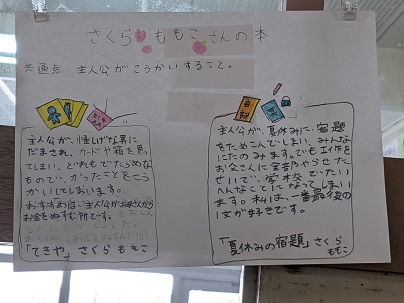 さくらももこさんの本
共通点 主人公がこうかいすること。
主人公が、怪しげな男に
だまされ、カードや箱を買っ
てしまい、どれもでたらめな
もので、かったことをこう
かいしてしまいます。
おすすめは、主人公がお母さんから
お金をぬすむ所です。
「てきや」さくらももこ
主人公が、夏休みに、宿題
をためこんでしまい、みんな
にたのみます。でも工作を
お父さんに全部やらせた
せいで、学校でたい
へんなことになってしまい
ます。私は、一番最後の
文が好きです。
「夏休みの宿題」さくら
ももこ